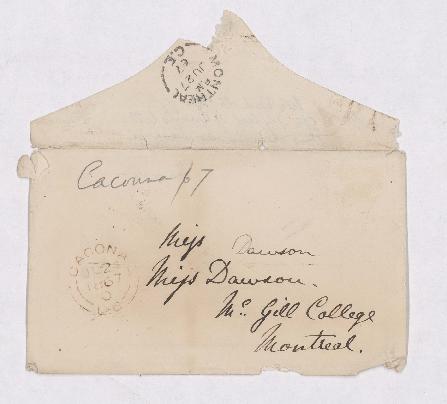 MONTREAL
JU 27
67
C.E.
Cacouna 67
CACONA
67
Miss Dawson
Miss Dawson.
Mc. Gill College
Montreal.